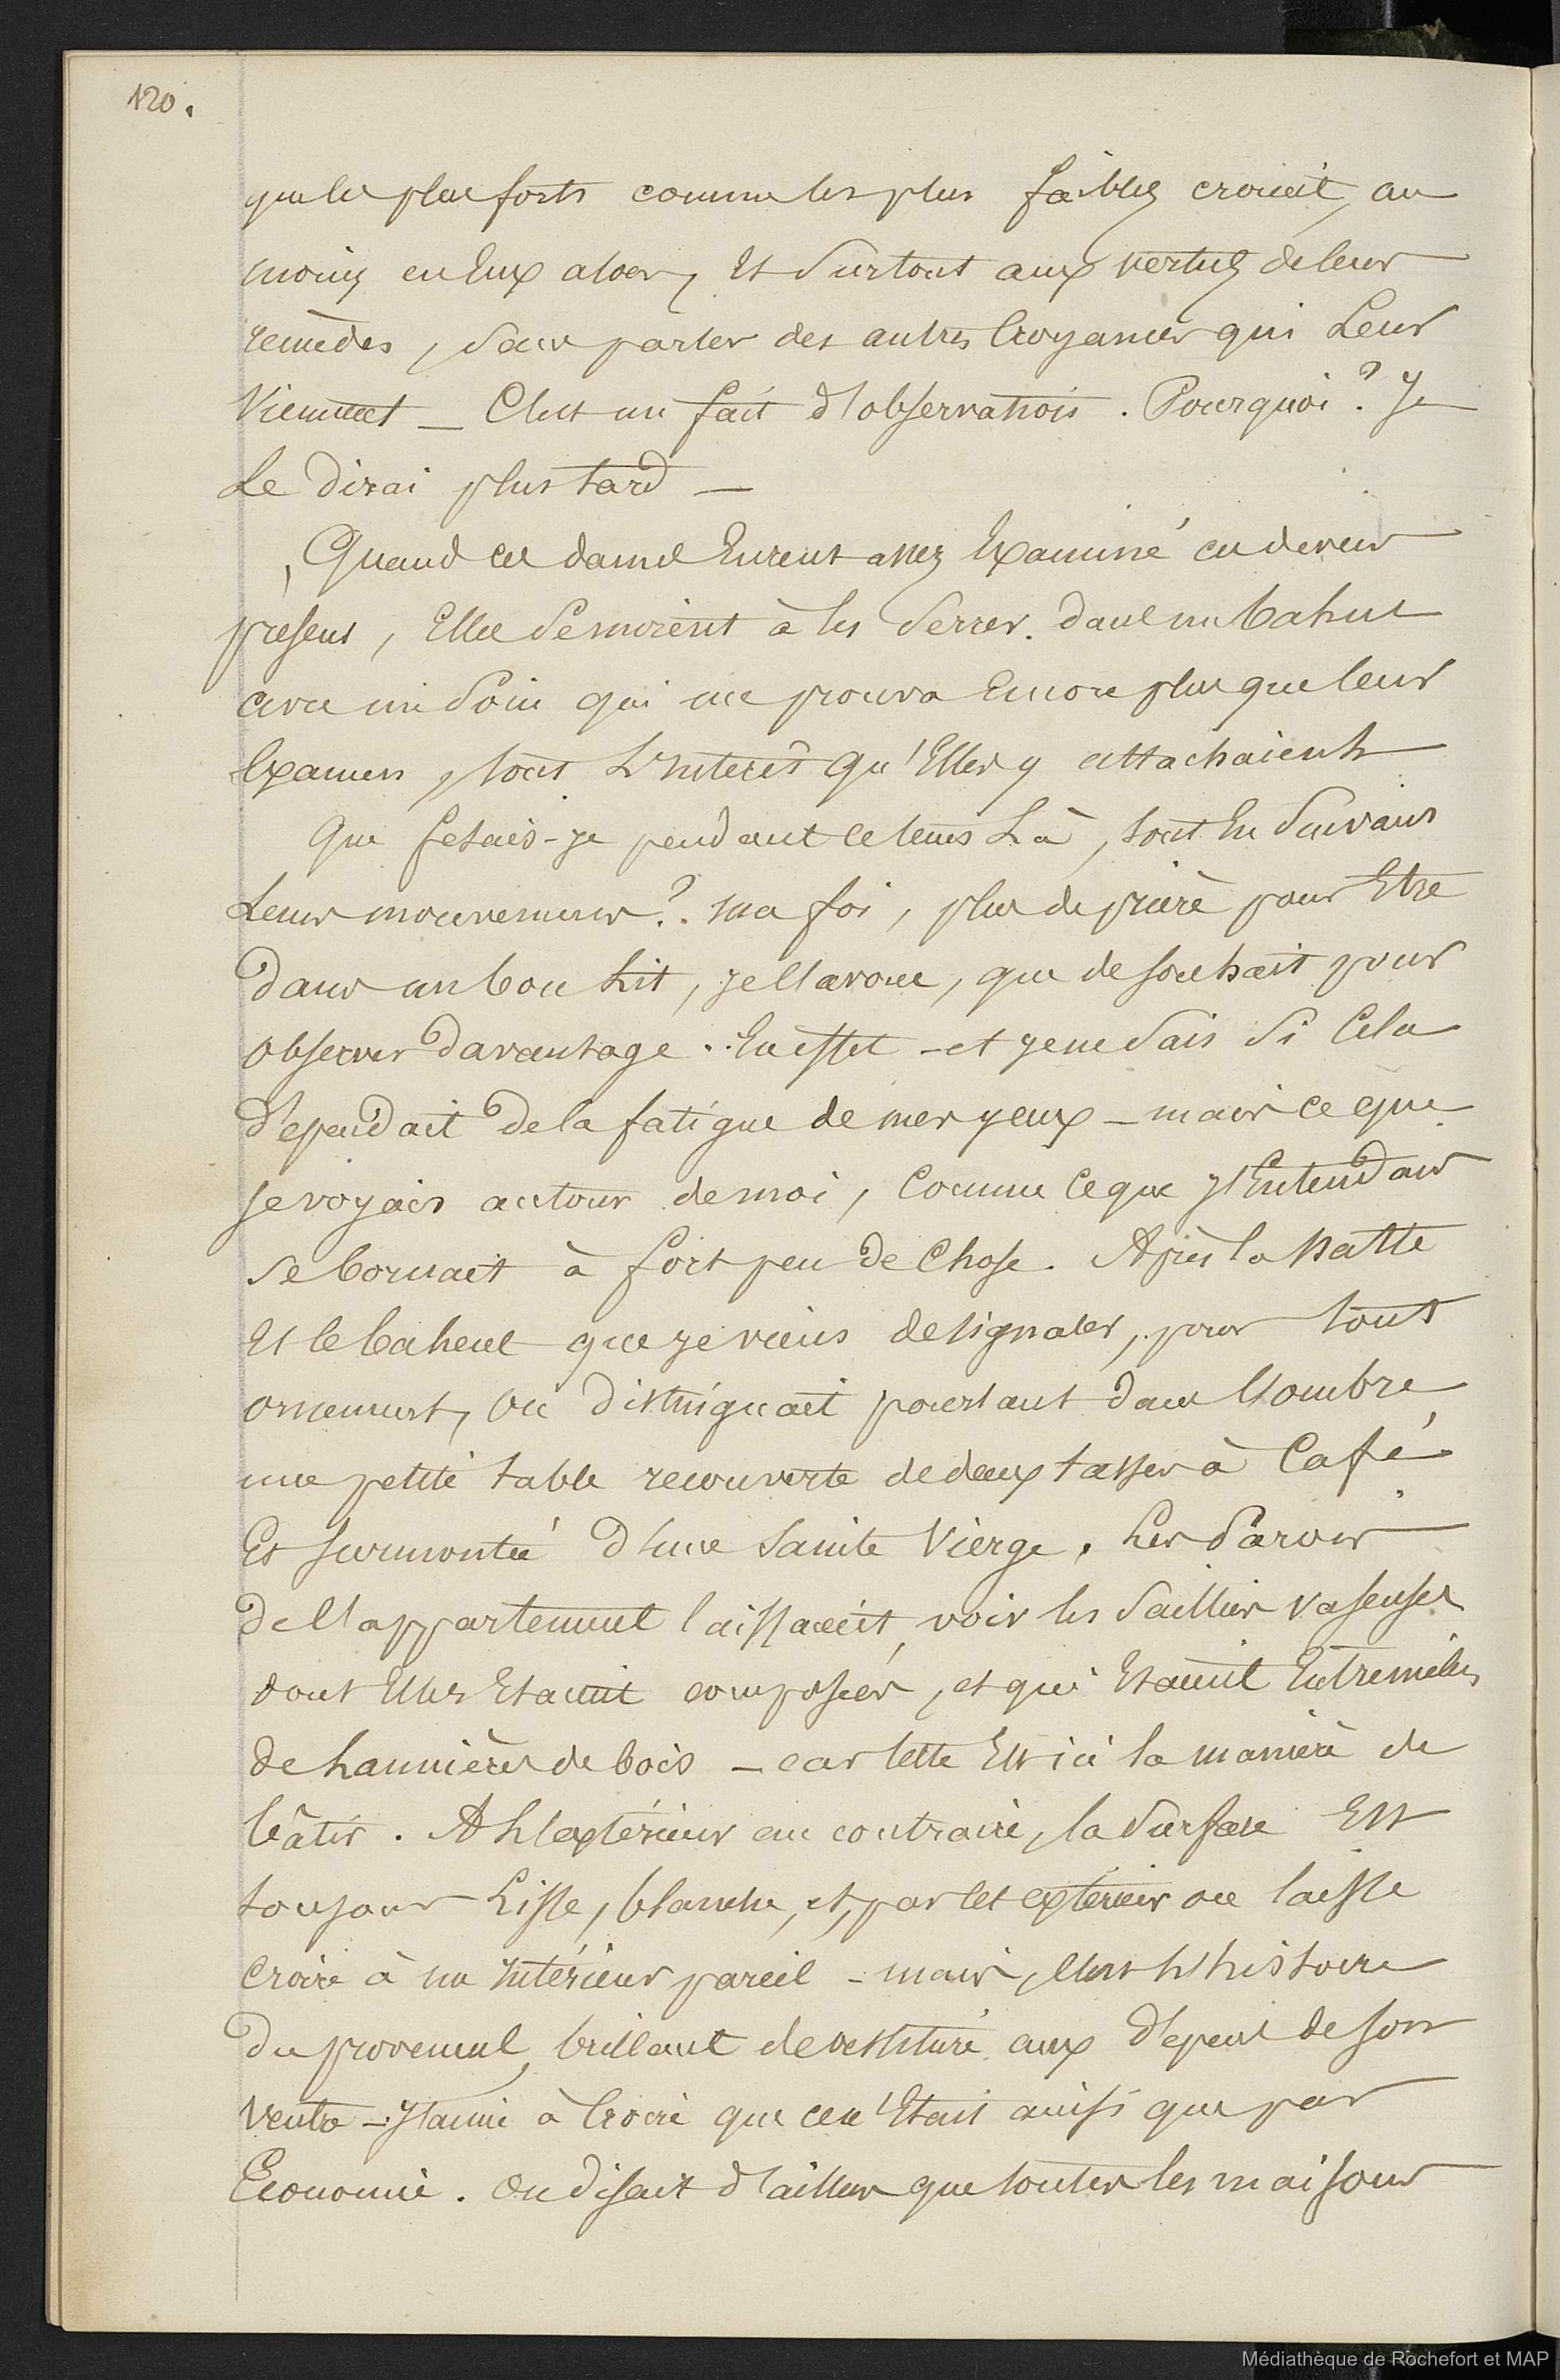 120.
que les plus forts comme les plus faibles croient, au
moins en eux alors, Et Surtout aux vertus de leurs
remèdes, Sans parler des autres Croyances qui Leur
Viennent _ C'est un fait d'observation. Pourquoi? Je
Le Dirai plus tard _
Quand ces dames Eurent assez Examiné ces divers
présens, Elles Se mirent à les Serrer dans un bahut
avec un Soin qui me prouva Encore plus que leur
Examen, tout L'intérêt qu'Elles y attachaient
Que fesais-je pendant ce tems Là, tout En Suivant
Leurs mouvemens? Ma foi, plus de prière pour Etre
Dans un bon Lit, je l'avoue, que de souhait pour
observer Davantage. En effet - et je ne Sais Si Cela
Dépendait De la fatigue de mes yeux _ mais ce que
je voyais autour de moi, Comme Ce que j'Entendais
Se bornait à fort peu De Chose. Après la Natte
Et le bahut que je viens de signaler, pour tout
ornement, on Distinguait pourtant Dans l'ombre
une petite table recouverte de deux tasses à Café
Et surmontée D'une Sainte Vierge. Les Parois
De l'appartement laissaient voir les Saillies vaseuses
dont Elles Etaient composées, et qui Etaient Entremêlées
de lannières de bois _ car telle Est ici la manière de
bâtir. A L'extérieur au contraire, la Surface Est
toujours Lisse, blanche, et, par cet extérieur on laisse
Croire à un intérieur pareil - mais, c'est L'histoire
Du provençal, brillant de vestiture aux Dépens de son
Ventre - J'aime à Croire que ce n'Etait ainsi que par
Economie. On Disait D'ailleurs que toutes les maisons
Médiathèque de Rochefort et MAP